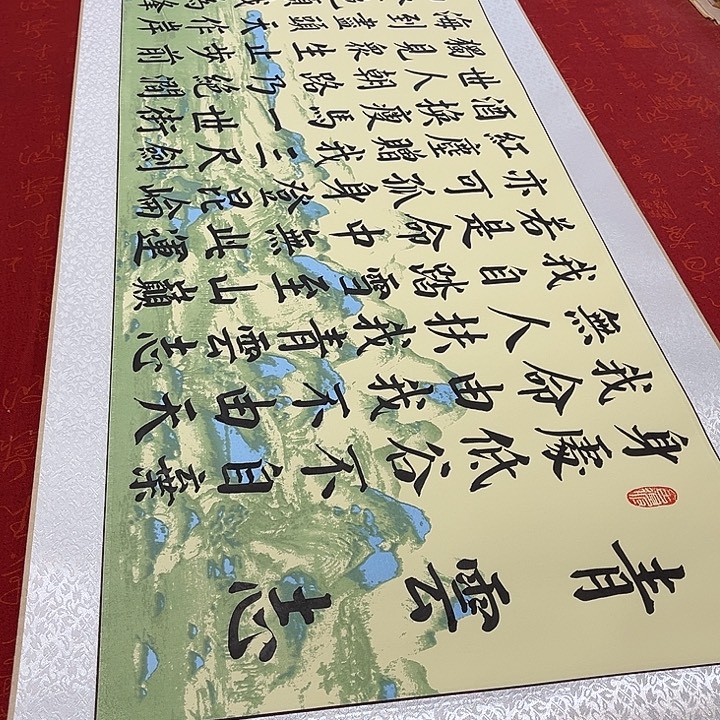 青雲志
身處低谷不自棄
我命由我不由天
無人扶我青雲志
我自踏雪至山巔
若是命中無此運
亦可孤身登昆崘
紅塵贈我三尺劍
酒換瘦馬一世術
世人朝路乃絕關
獨見衆生止步前
海到盡頭天作岸
為峰